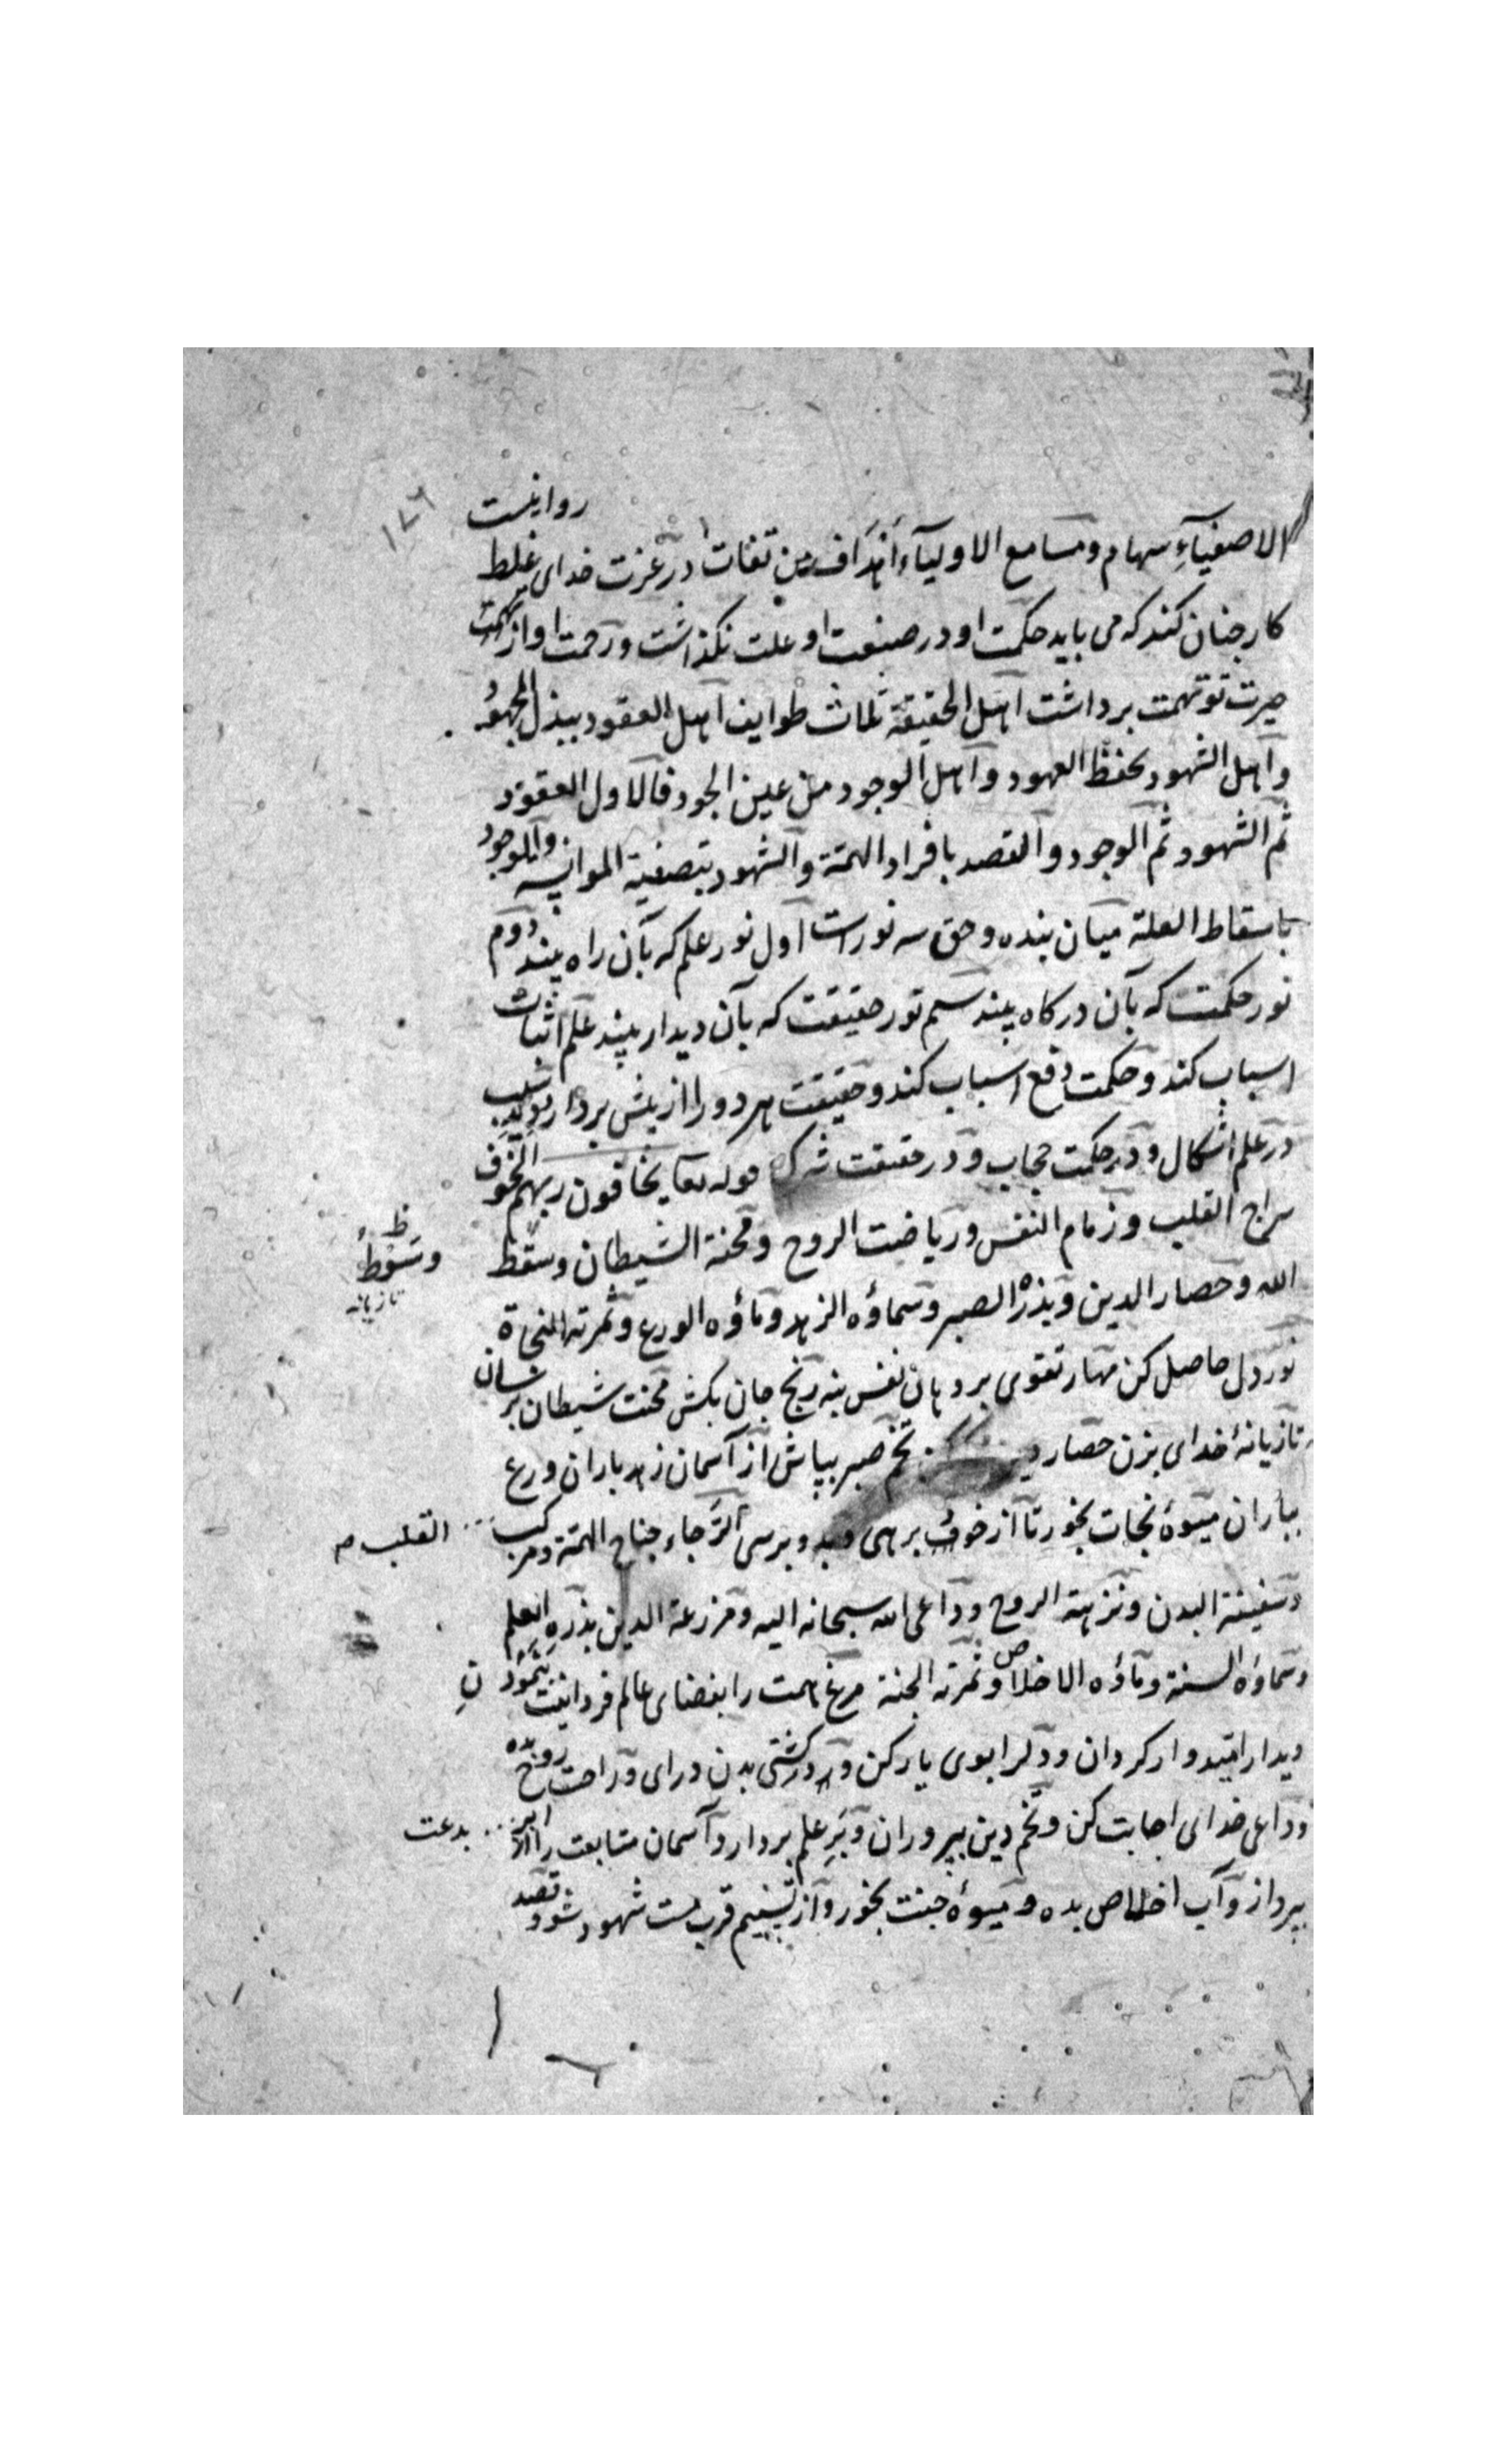 ۱۷۶
الاصفیآءِ سهام ومسامع الاولیآء أهدَاف در عزت خدای غلط روا نیست
کار چنان کند که می باید حکمت او در صنعت او علت نگذاشت ورحمت او از تهمت
تو تهمت برداشت اهل الحقیقة ثلاث طوایف اهل العقود ببذل المجهود
واهل الشهود بحفظ العهود واهل الوجود من عین الجود فالاول العقود
ثم الشهود ثم الوجود والقصد بافراد الهمّة والشهود بتصفیة والوجود
باسقاط العلة میان بنده وحق سه نورست اول نور علم که بآن راه بیند دوم
نور حکمت که بآن درکاه بیند سیم نور حقیقت که بآن دیدار بیند علم اثبات
اسباب کند وحکمت دفع اسباب کند وحقیقت هر دو را از پیش بردارد سبب دیدن
در علم اشکال ودر حکمت حجاب ودر حقیقت شرک قوله تعا یخافون ربهم الخوف
سراج القلب وزمام النفس وریاضت الروح ومحنة الشیطان وسقط
وسَوْطُ ظ
تازیانه
الله وحصار الدین وبذرُه الصبر وسماؤه الزهد وماؤه الورع وثمرته النجاة
نور دل حاصل کن مهار تقوی بر دهان نفس بنه رنج جان بکش محنت شیطان برسان
تازیانهٔ خدای بزن حصار تخم صبر بپاش از آسمان زهد باران ورع
بباران میوهٔ نجات بخور تا از خوف برهی وبرسی الرَّجاء جناح الهمّة ومرکب
القلب صح
وسفینة البدن ونزهة الروح وداعی الله سبحانه الیه ومزرعة الدین بذره العلم
وسماؤه السنة وماؤه الاخلاص وثمرته الجنة مرغ همت را بفضای عالم فردانیت
دیدار امیدوار کردان ودلرا بوی یار کن ودر کشتی بدن درای وراحت روح بده
وداعی خدای اجابت کن وتخم دین بپروران وبَرِ علم بردار وآسمان متابعت را از ابر
بدعت
بپرداز وآب اخلاص بده ومیوهٔ جنت بخور واز تسنیم قرب مست شهود شو وقصد